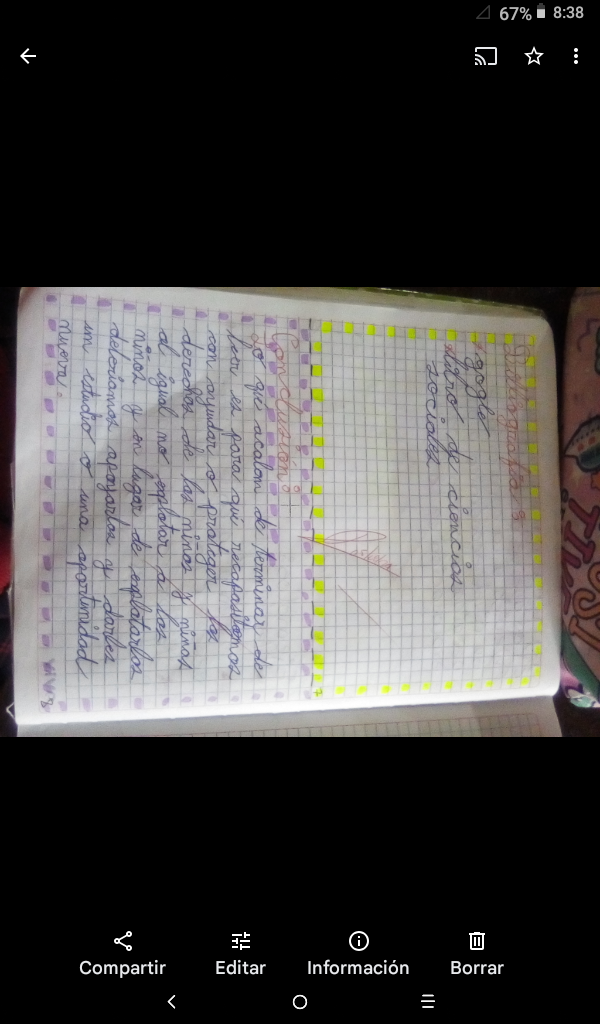 67% 8:38
Bibliografía:
*google
*libro de ciencias
sociales
Conclusion:
lo que acabam de terminar de
leer es para que recapasitemos
con ayudar o proteger los
derechos de las niñas y niños
al igual no explotar a los
niños y en lugar de explotarlos
deberiamos apoyarlos y darles
un estudio o una oportunidad
nueva.
Compartir Editar Información Borrar